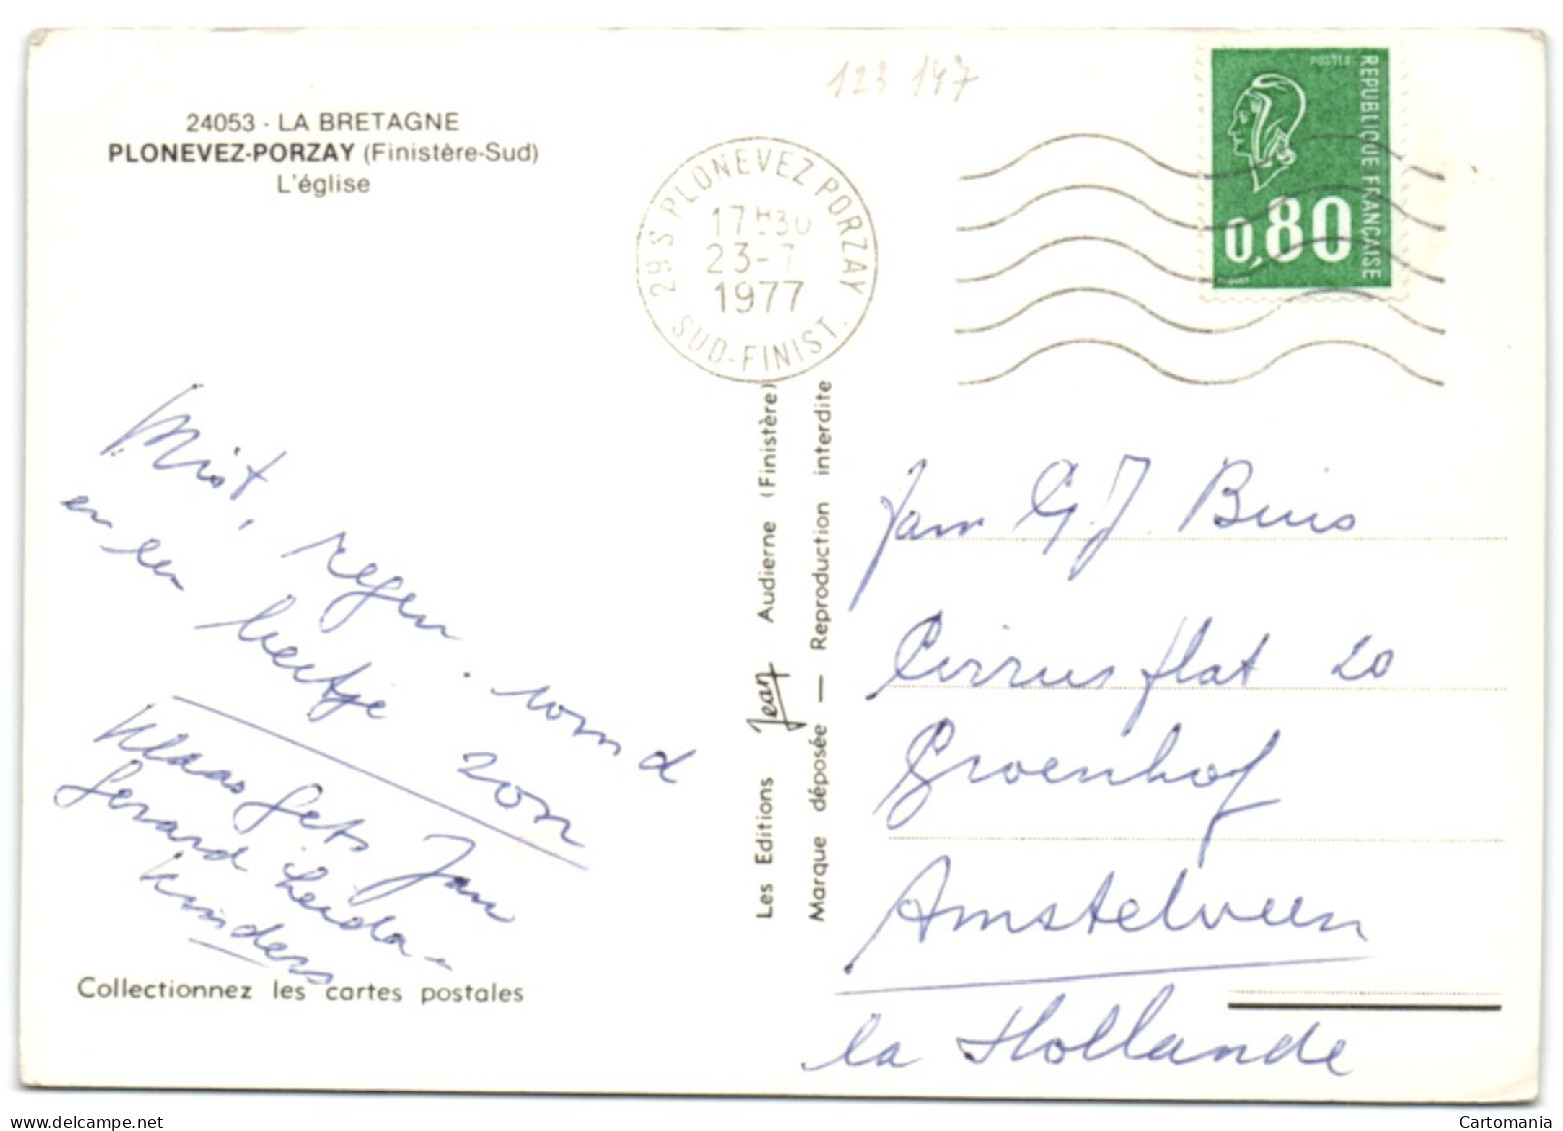 24053 - LA BRETAGNE
PLONEVEZ-PORZAY (Finistère-Sud)
L'église
123 147
29S PLONEVEZ PORZAY
17H30
23-7
1977
SUD-FINIST.
POSTES
REPUBLIQUE FRANÇAISE
0,80
Mist, regen. rond
en een beetje zon
Klaas Gets Jan
Gerard Leida-
kinders
Collectionnez les cartes postales
Les Editions Jean Audierne (Finistère)
Marque déposée — Reproduction interdite
Jan G. J. Buis
Cirrusflat 20
Groenhof
Amstelveen
la Hollande
Cartomania